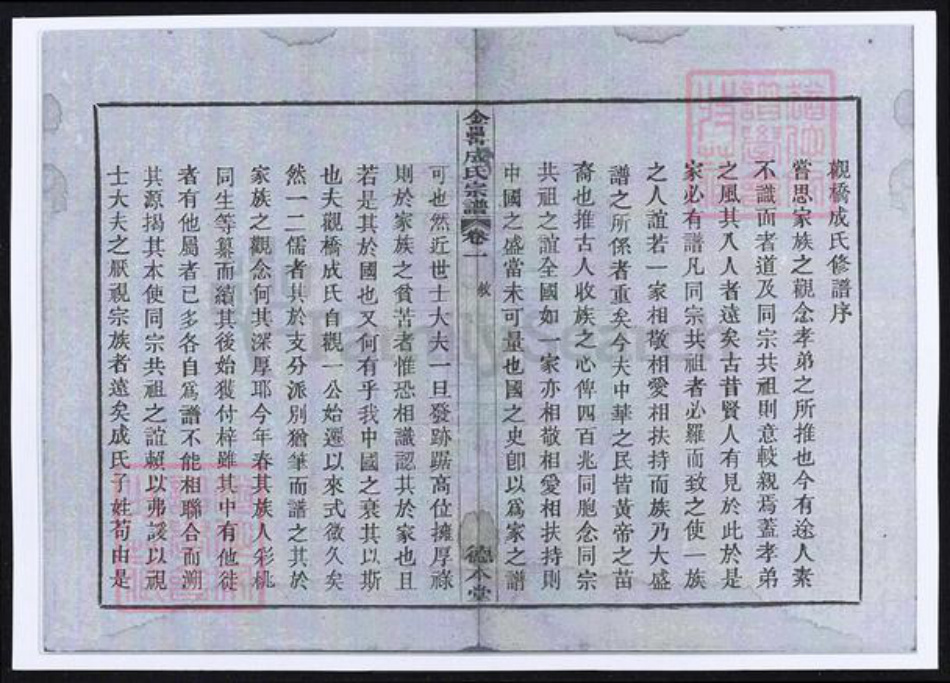 觀橋成氏修譜序
嘗思家族之觀念孝弟之所推也今有途人素
不識面者道及同宗共祖則意較親焉蓋孝弟
之風其入人者遠矣古昔賢人有見於此於是
家必有譜凡同宗共祖者必羅而致之使一族
之人誼若一家相敬相愛相扶持而族乃大盛
譜之所係者重矣今夫中華之民皆黃帝之苗
裔也推古人收族之心俾四百兆同胞念同宗
共祖之誼全國如一家亦相敬相愛相扶持則
中國之盛當未可量也國之史卽以爲家之譜
成氏宗譜 卷一 敘 德本堂
可也然近世士大夫一旦發跡踞高位擁厚祿
則於家族之貧苦者惟恐相識認其於家也且
若是其於國也又何有乎我中國之衰其以斯
也夫觀橋成氏自觀一公始遷以來式微久矣
然一二儒者其於支分派別猶筆而譜之其於
家族之觀念何其深厚耶今年春其族人彩桃
同生等纂而續其後始獲付梓雖其中有他徙
者有他屬者已多各自爲譜不能相聯合而溯
其源揭其本使同宗共祖之誼賴以弗諼以視
士大夫之厭視宗族者遠矣成氏子姓苟由是